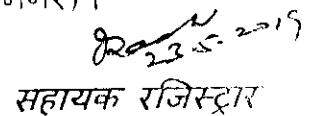 23-5-2019
सहायक रजिस्ट्रार